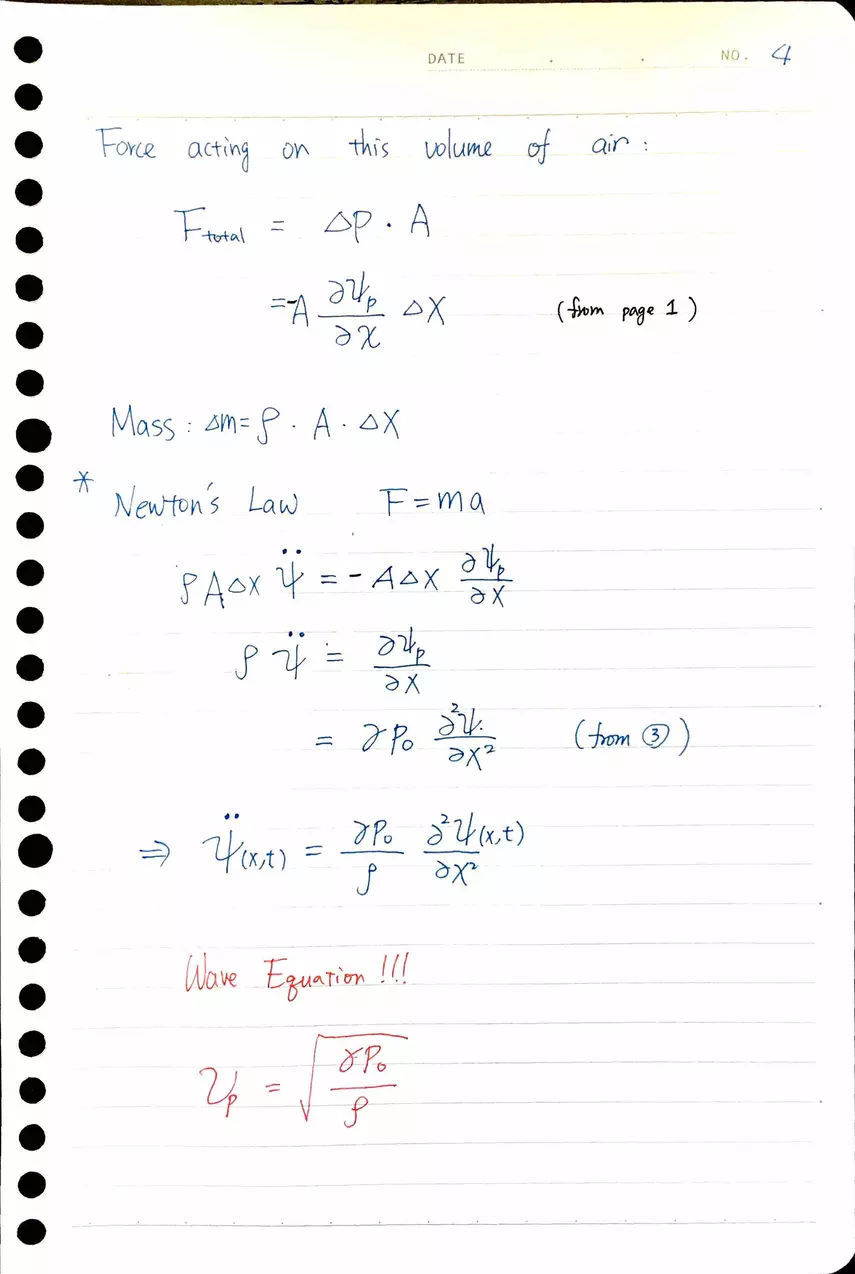 DATE . . NO. 4
Force acting on this volume of air :
F_total = ΔP · A
= -A ∂ψ_p/∂x ΔX (from page 1)
Mass : Δm = ρ · A · ΔX
* Newton's Law F = ma
ρ A Δx ψ̈ = - A Δx ∂ψ_p/∂x
ρ ψ̈ = ∂ψ_p/∂x
= γ P₀ ∂²ψ/∂x² (from ③)
⇒ ψ̈(x,t) = γP₀/ρ ∂²ψ(x,t)/∂x²
Wave Equation !!!
v_p = √(γP₀/ρ)